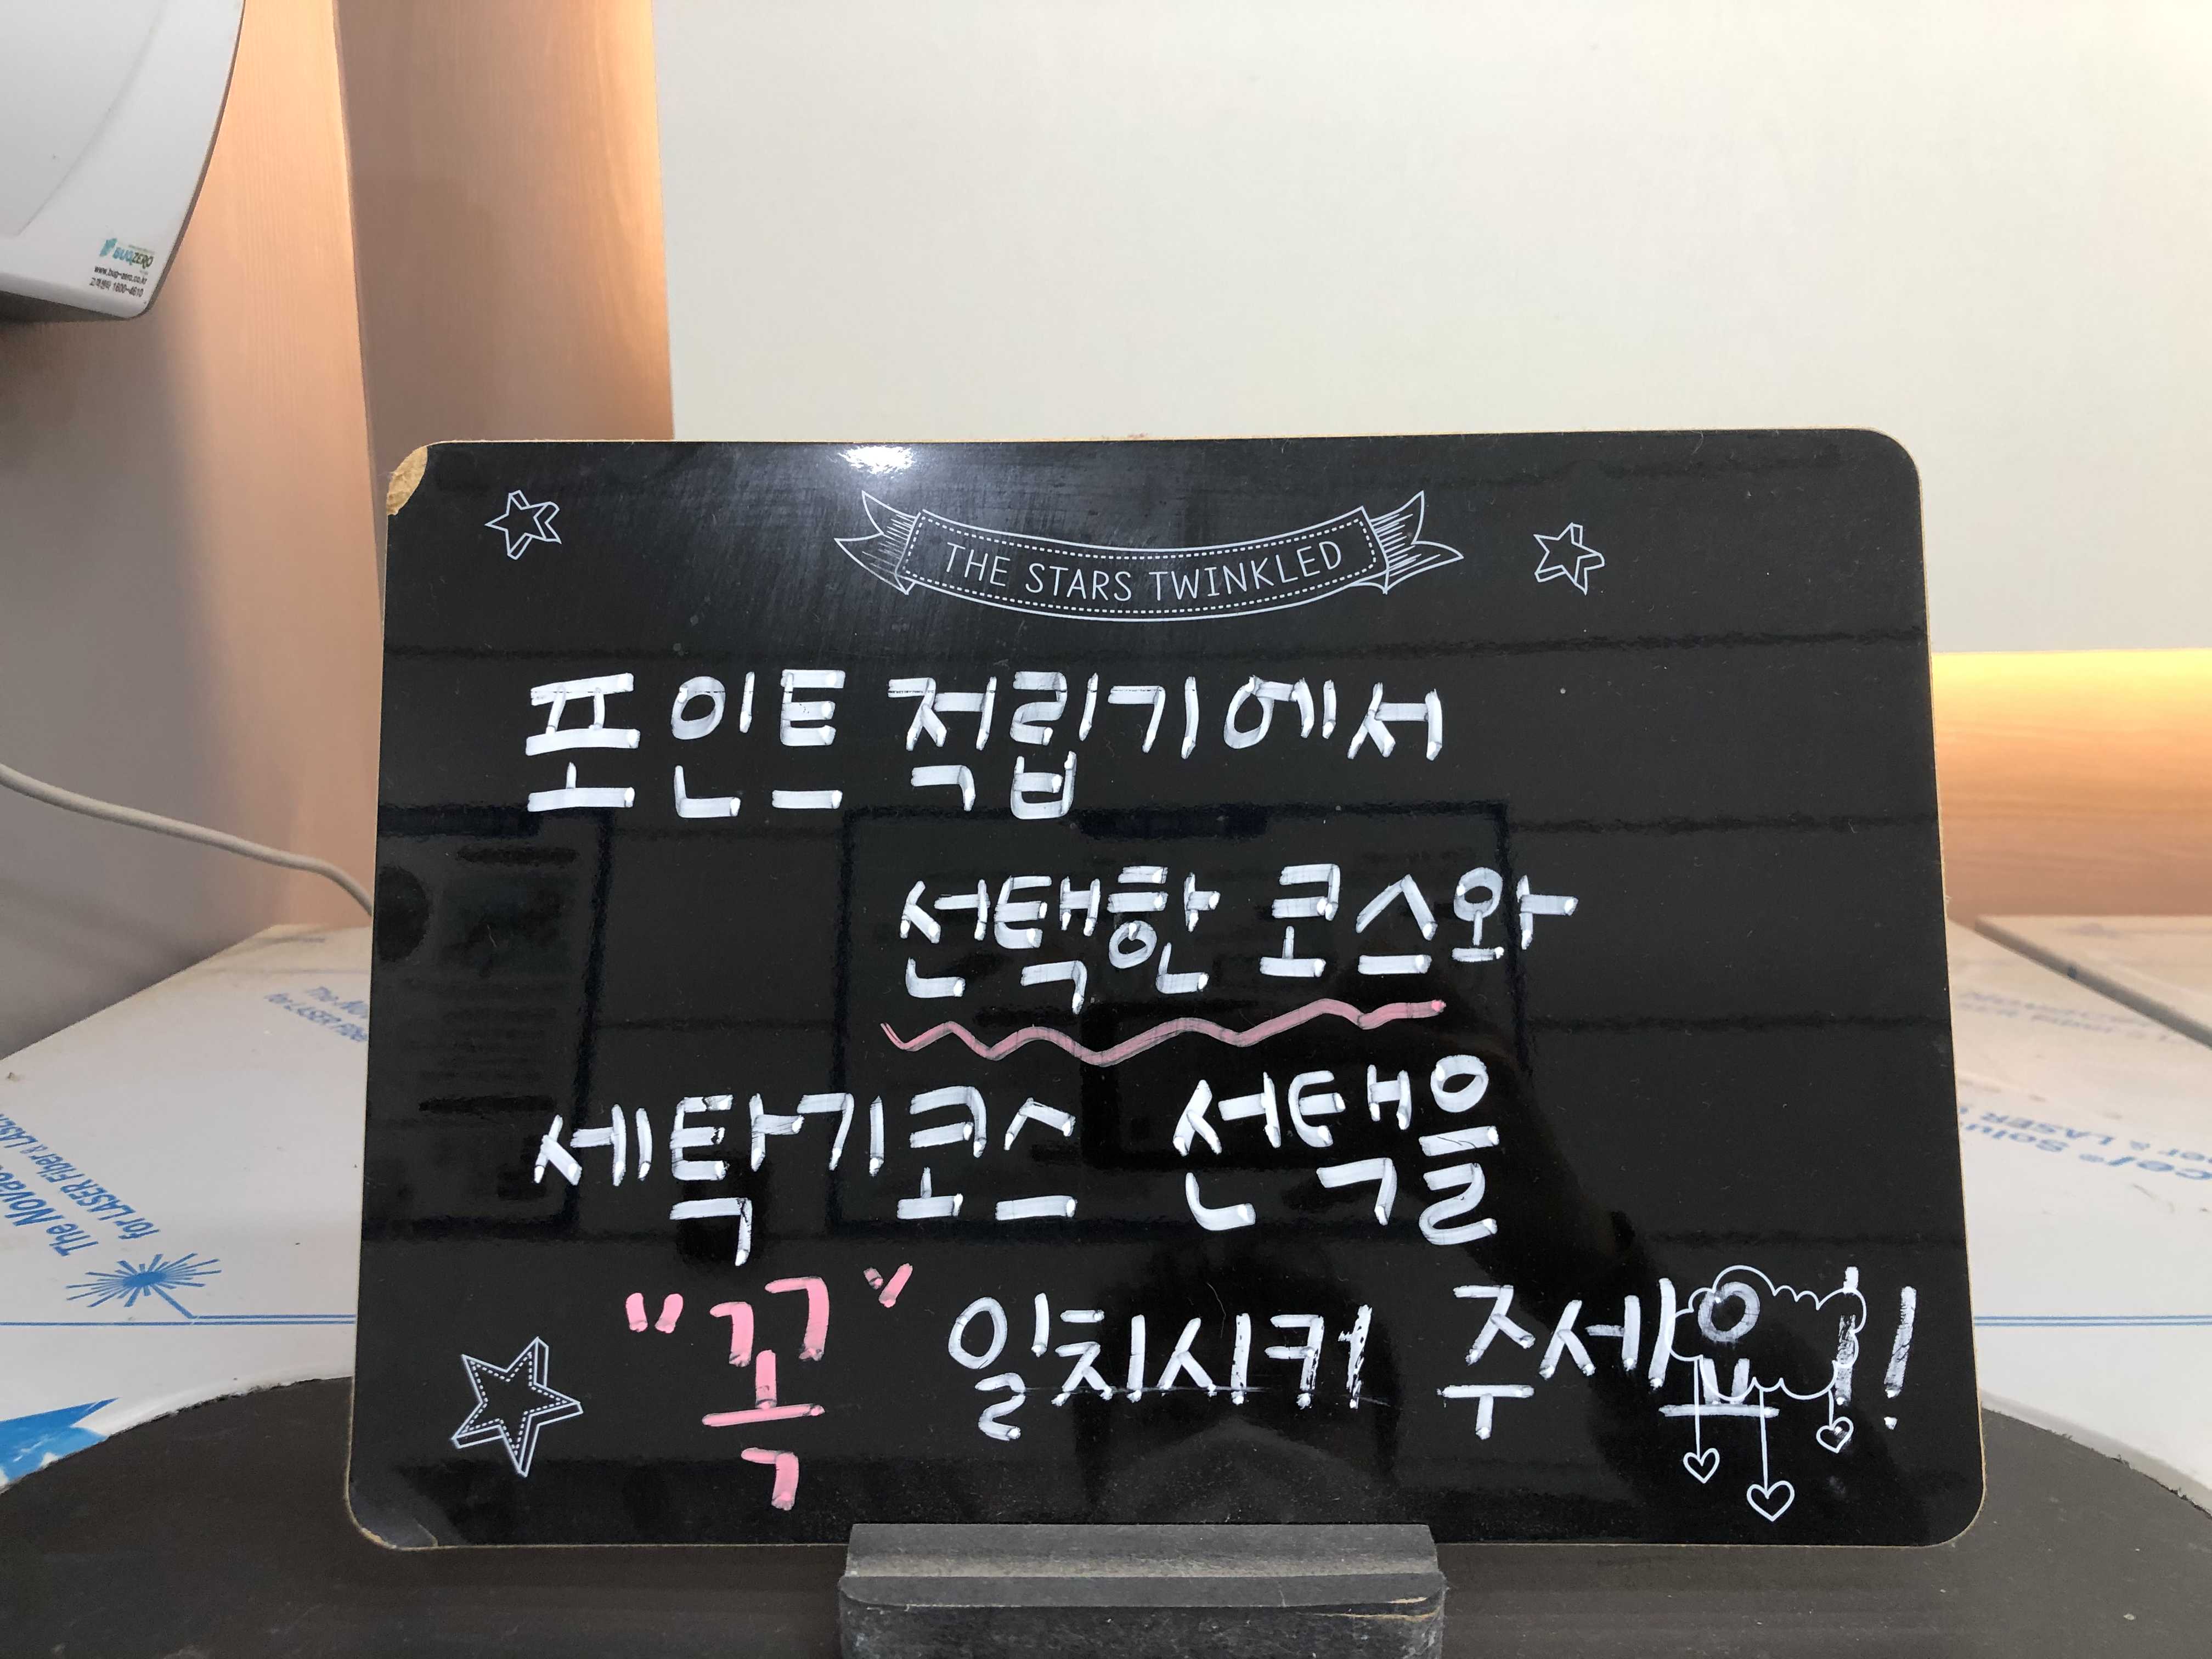 BUGZERO
www.bug-zero.co.kr
고객센터 1600-4610
THE STARS TWINKLED
포인트 적립기에서
선택한 코스와
세탁기코스 선택을
"꼭" 일치시켜 주세요!!
The Novace
for LASER Fiber & LASE